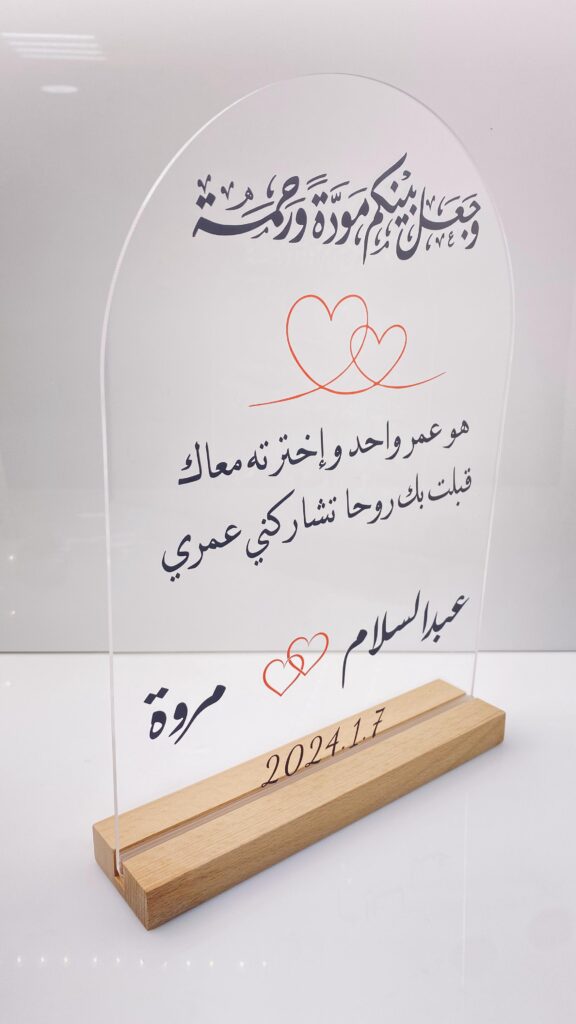 وَجَعَلَ بَيْنَكُم مَوَدَّةً وَرَحْمَةً
هو عمر واحد وإخترته معاك
قبلت بك روحا تشاركني عمري
عبدالسلام مروة
2024.1.7